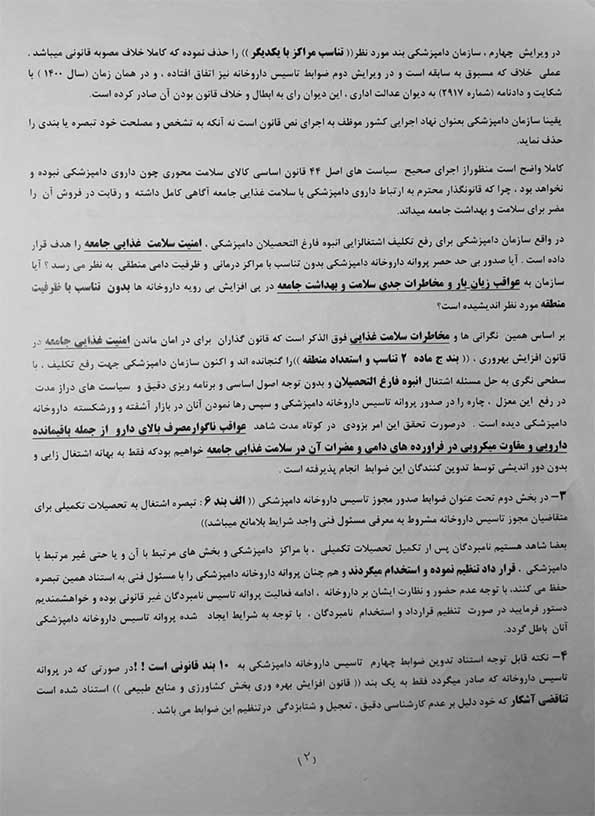 در ویرایش چهارم ، سازمان دامپزشکی بند مورد نظر(( تناسب مراکز با یکدیگر )) را حذف نموده که کاملا خلاف مصوبه قانونی میباشد .
عملی خلاف که مسبوق به سابقه است و در ویرایش دوم ضوابط تاسیس داروخانه نیز اتفاق افتاده ، و در همان زمان (سال ۱۴۰۰ ) با
شکایت و دادنامه (شماره ۲۹۱۷) به دیوان عدالت اداری ، این دیوان رای به ابطال و خلاف قانون بودن آن صادر کرده است.
یقینا سازمان دامپزشکی بعنوان نهاد اجرایی کشور موظف به اجرای نص قانون است نه آنکه به تشخص و مصلحت خود تبصره یا بندی را
حذف نماید.
کاملا واضح است منظوراز اجرای صحیح سیاست های اصل ۴۴ قانون اساسی کالای سلامت محوری چون داروی دامپزشکی نبوده و
نخواهد بود ، چرا که قانونگذار محترم به ارتباط داروی دامپزشکی با سلامت غذایی جامعه آگاهی کامل داشته و رقابت در فروش آن را
مضر برای سلامت و بهداشت جامعه میداند.
در واقع سازمان دامپزشکی برای رفع تکلیف اشتغالزایی انبوه فارغ التحصیلان دامپزشکی ، امنیت سلامت غذایی جامعه را هدف قرار
داده است . آیا صدور بی حد حصر پروانه داروخانه دامپزشکی بدون تناسب با مراکز درمانی و ظرفیت دامی منطقی به نظر می رسد ؟ آیا
سازمان به عواقب زیان بار و مخاطرات جدی سلامت و بهداشت جامعه در پی افزایش بی رویه داروخانه ها بدون تناسب با ظرفیت
منطقه مورد نظر اندیشیده است؟
بر اساس همین نگرانی ها و مخاطرات سلامت غذایی فوق الذکر است که قانون گذاران برای در امان ماندن امنیت غذایی جامعه در
قانون افزایش بهروری ، (( بند ج ماده ۲ تناسب و استعداد منطقه ))را گنجانده اند و اکنون سازمان دامپزشکی جهت رفع تکلیف ، با
سطحی نگری به حل مسئله اشتغال انبوه فارغ التحصیلان و بدون توجه اصول اساسی و برنامه ریزی دقیق و سیاست های دراز مدت
در رفع این معزل ، چاره را در صدور پروانه تاسیس داروخانه دامپزشکی و سپس رها نمودن آنان در بازار آشفته و ورشکسته داروخانه
دامپزشکی دیده است . درصورت تحقق این امر بزودی در کوتاه مدت شاهد عواقب ناگوارمصرف بالای دارو از جمله باقیمانده
دارویی و مقاوت میکروبی در فراورده های دامی و مضرات آن در سلامت غذایی جامعه خواهیم بودکه فقط به بهانه اشتغال زایی و
بدون دور اندیشی توسط تدوین کنندگان این ضوابط انجام پذیرفته است .
۳- در بخش دوم تحت عنوان ضوابط صدور مجوز تاسیس داروخانه دامپزشکی (( الف بند ۶ : تبصره اشتغال به تحصیلات تکمیلی برای
متقاضیان مجوز تاسیس داروخانه مشروط به معرفی مسئول فنی واجد شرایط بلامانع میباشد))
بعضا شاهد هستیم نامبردگان پس ار تکمیل تحصیلات تکمیلی ، با مراکز دامپزشکی و بخش های مرتبط با آن و یا حتی غیر مرتبط با
دامپزشکی ، قرار داد تنظیم نموده و استخدام میگردند و هم چنان پروانه داروخانه دامپزشکی را با مسئول فنی به استناد همین تبصره
حفظ می کنند، با توجه عدم حضور و نظارت ایشان بر داروخانه ، ادامه فعالیت پروانه تاسیس نامبردگان غیر قانونی بوده و خواهشمندیم
دستور فرمایید در صورت تنظیم قرارداد و استخدام نامبردگان ، با توجه به شرایط ایجاد شده پروانه تاسیس داروخانه دامپزشکی
آنان باطل گردد.
۴- نکته قابل توجه استناد تدوین ضوابط چهارم تاسیس داروخانه دامپزشکی به ۱۰ بند قانونی است ! !در صورتی که در پروانه
تاسیس داروخانه که صادر میگردد فقط به یک بند (( قانون افزایش بهره وری بخش کشاورزی و منابع طبیعی )) استناد شده است
تناقضی آشکار که خود دلیل بر عدم کارشناسی دقیق ، تعجیل و شتابزدگی درتنظیم این ضوابط می باشد .
(۲)